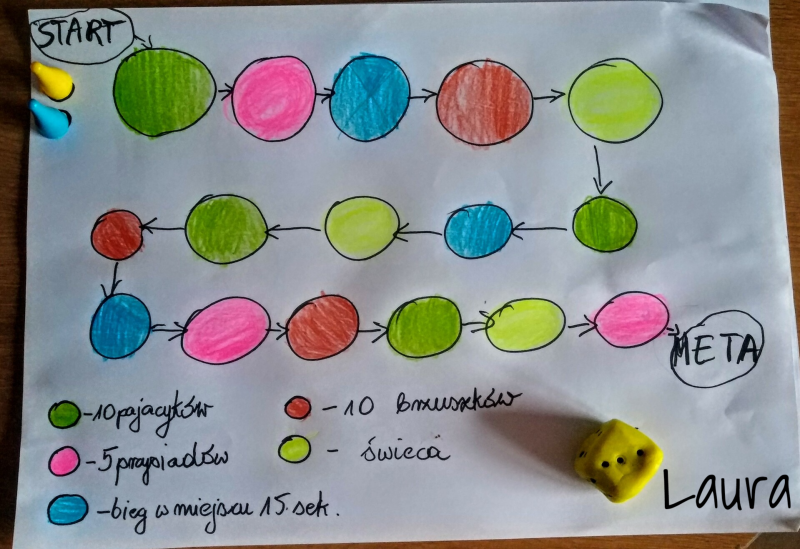 START
META
-10 pajacyków
- 10 brzuszków
-5 przysiadów
- świeca
-bieg w miejscu 15.sek.
Laura